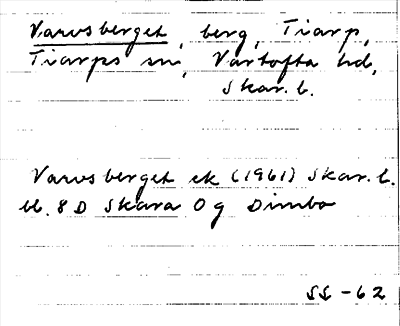 Varvsberget, berg, Tiarp,
Tiarps sn, Vartofta hd,
Skar. l.
Varvsberget ek (1961) Skar. l.
bl. 8 D Skara Og Dimbo
SS -62